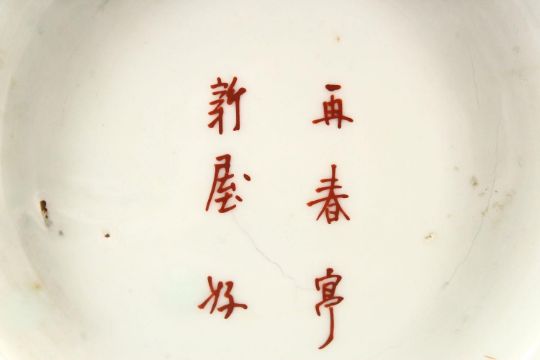 再春亭
新屋好